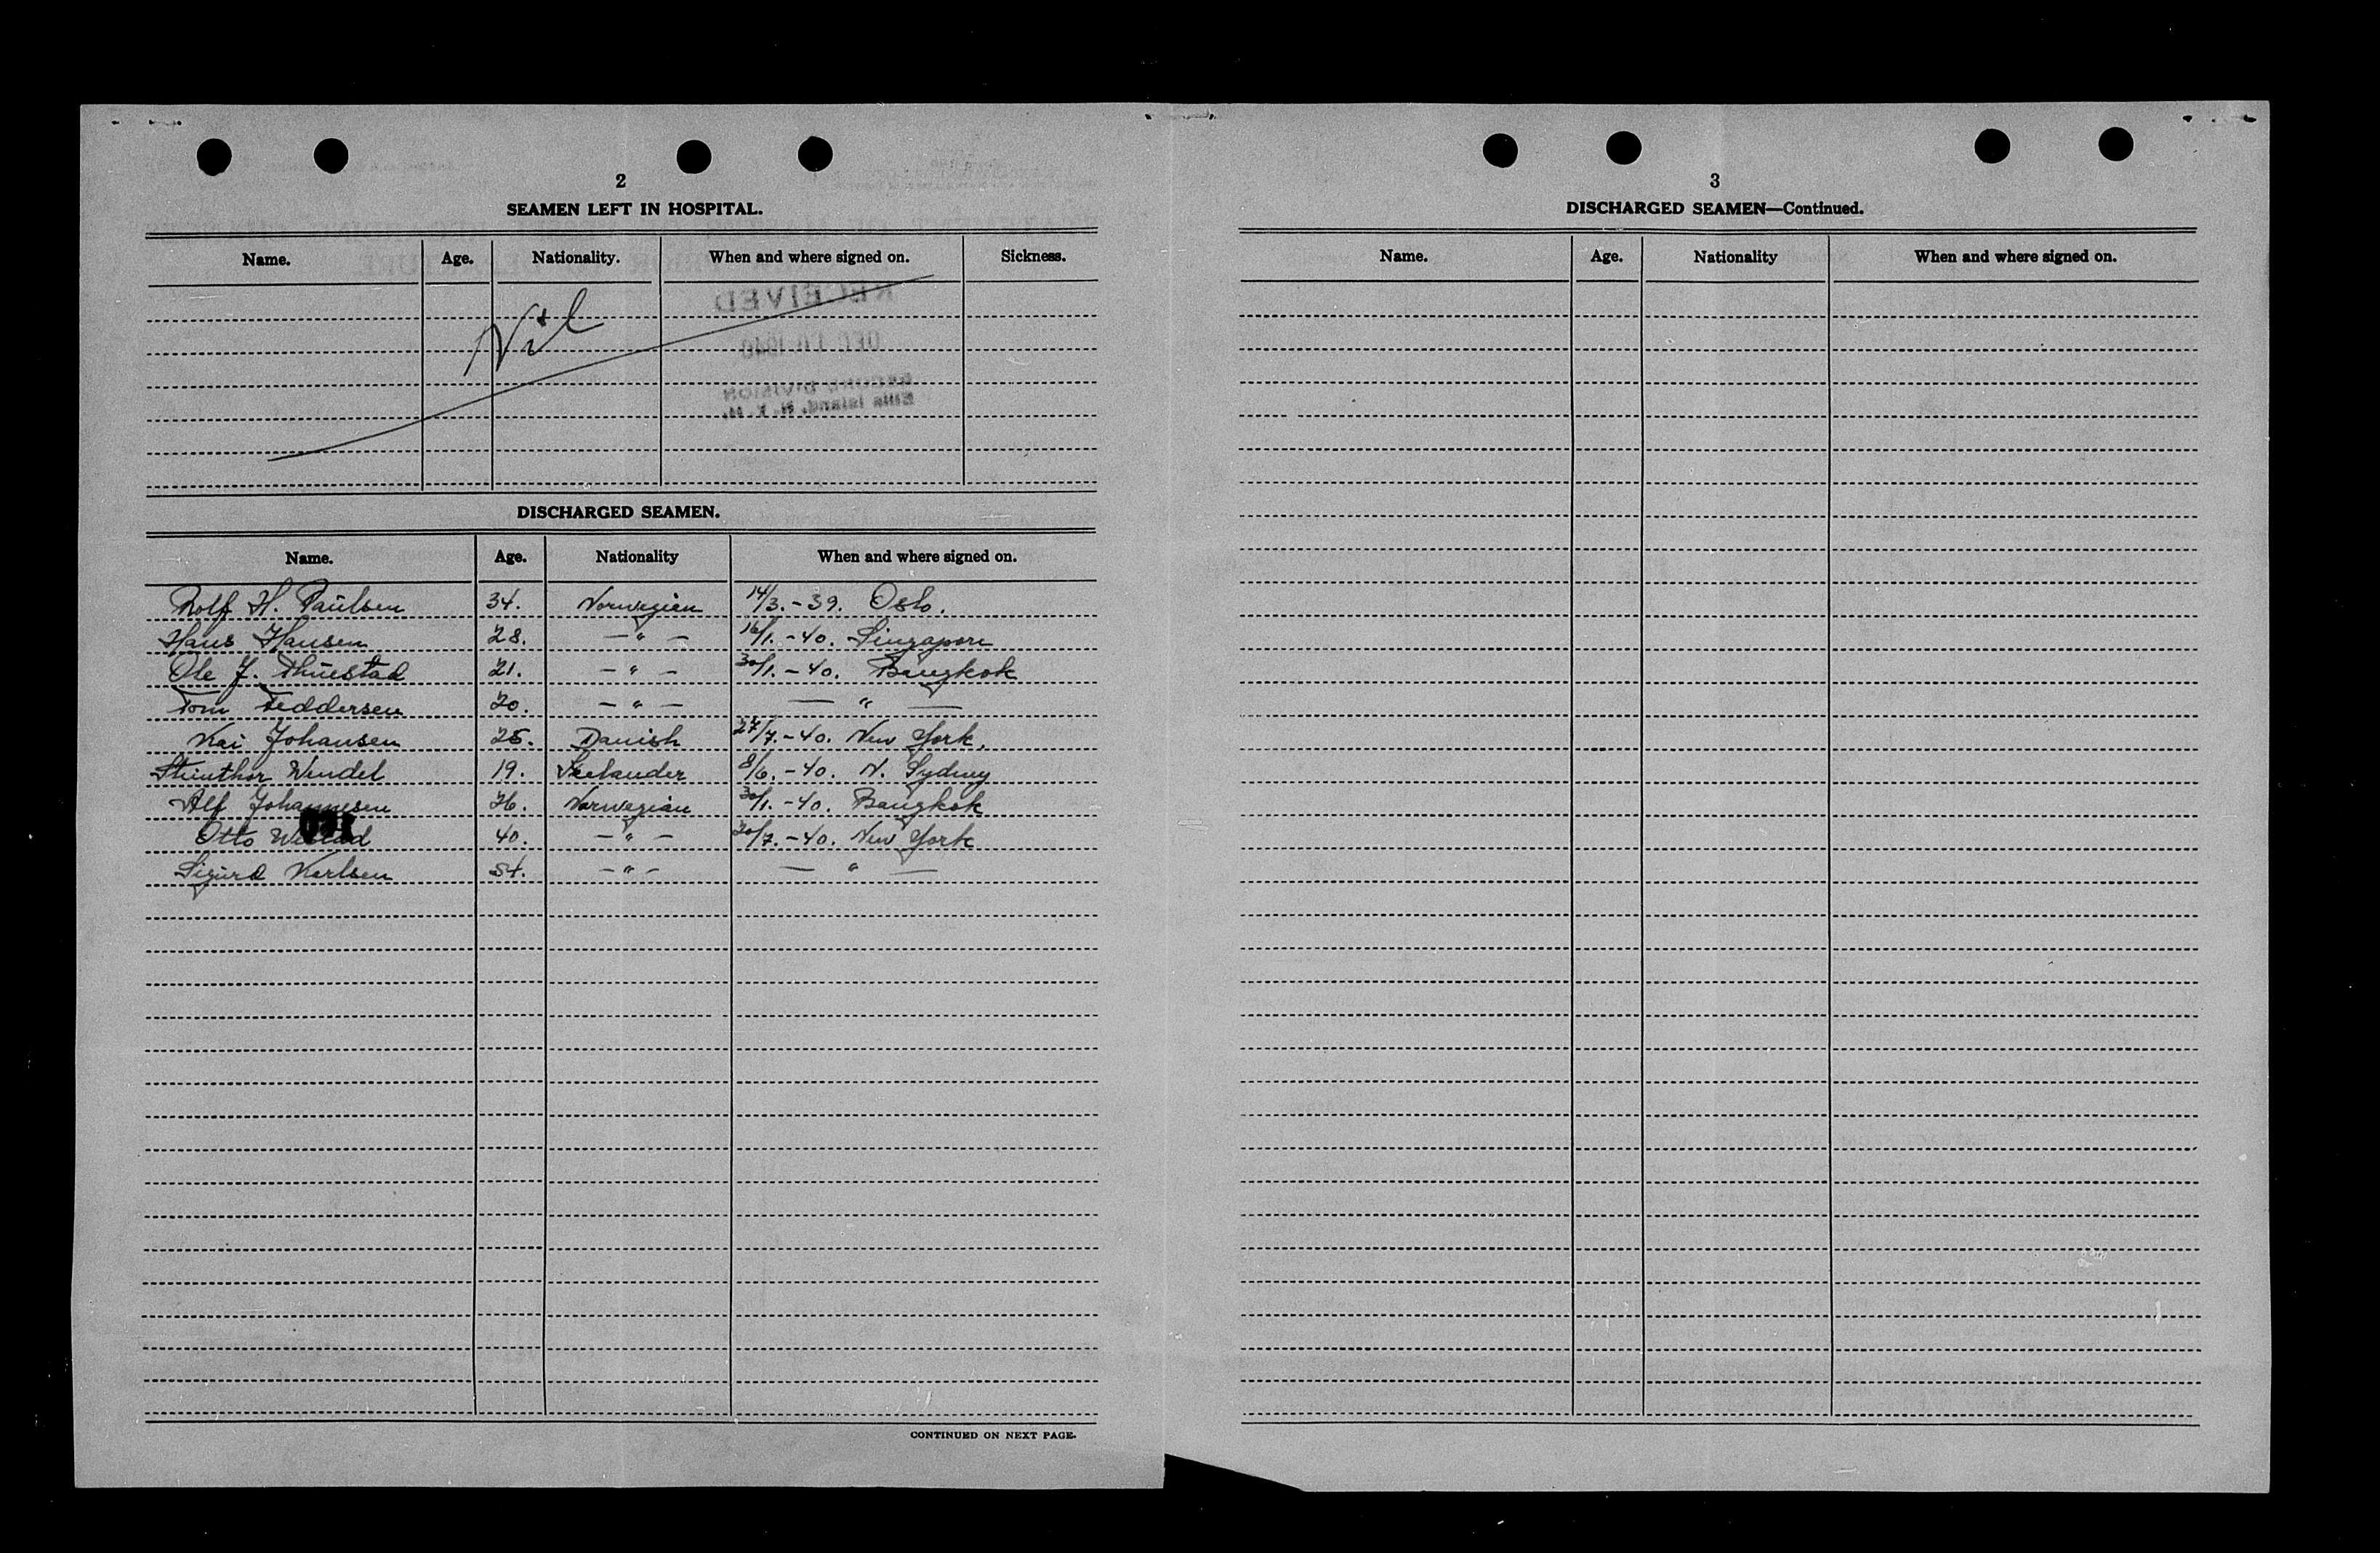 2
SEAMEN LEFT IN HOSPITAL.
Name. Age. Nationality. When and where signed on. Sickness.
Nil
RECEIVED
DEC 1940
RECORD DIVISION
Ellis Island, N. Y. H.
DISCHARGED SEAMEN.
Name. Age. Nationality When and where signed on.
Rolf H. Paulsen 34. Norwegian 14/3.-39. Oslo.
Hans Hansen 28. -"- 16/1.-40. Singapore
Ole J. Thuestad 21. -"- 30/1.-40. Bangkok
Tom Feddersen 20. -"- — " —
Kai Johansen 25. Danish 27/7.-40. New York.
Steinthor Wendel 19. 8/6.-40. N. Sydney
Alf Johannesen 26. Norwegian 30/1.-40. Bangkok
Otto 40. -"- 20/7.-40. New York
Sigurd Karlsen 54. -"- — " —
CONTINUED ON NEXT PAGE.
3
DISCHARGED SEAMEN—Continued.
Name. Age. Nationality When and where signed on.